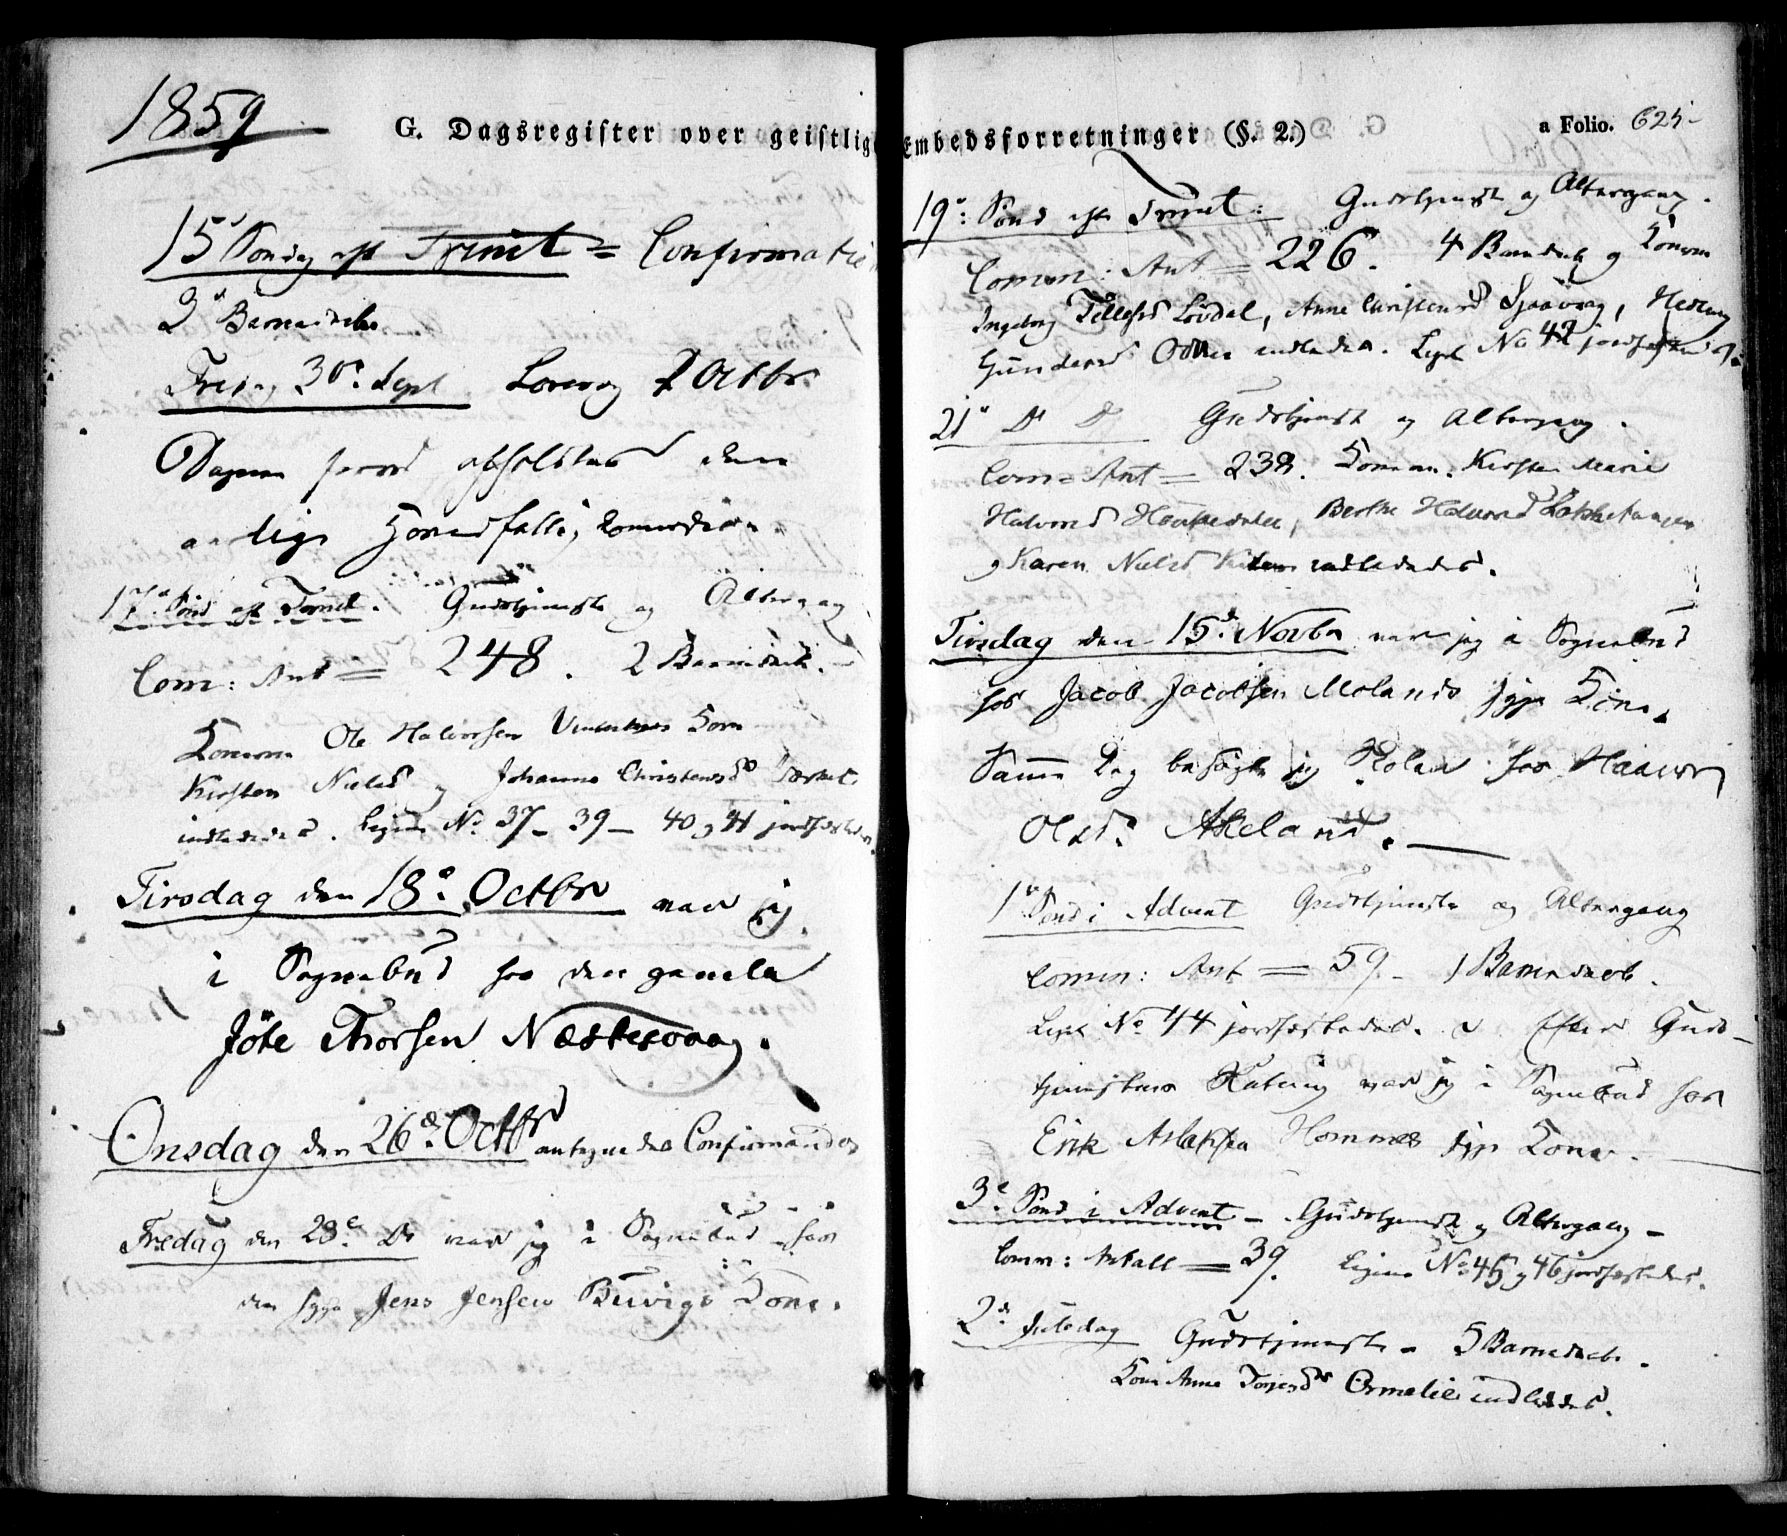 1859
G. Dagsregister over geistlige Embedsforretninger (§. 2.)
a Folio. 625
15d Søndag eft Trinit = Confirmation
2d Barnedaab
Fredag 30te Sept Løverdag 1 Octbr
Dagene hvorpaa afholdtes den
Forliges
17de Sønd eft Trinit. Gudstjeneste og Altergang
Com: Ant = 248. 2 Barnedaab.
Konerne Ole Halvorsen Kone
Kirsten Nielsd og Johanne Christensd
indledede. Ligene No 37 - 39 - 40 og 41 jordfæstede.
Tirsdag den 18de Octbr var jeg
i Sognebud hos den gamle
Jöte Thorsen Næstesvaag.
Onsdag den 26de Octbr antegnedes Confirmander
Fredag den 28de Ds var jeg i Sognebud hos
den syge Jens Jensen Buvigs Kone.
19de Sønd eft Trinit: Gudstjenst og Altergang.
Comm: Ant = 226. 4 Barnedaab og Konerne
Ingeborg Tellefsd Lövdal, Anne Christensd
Gundersd Odnes indledede. Liget No 42 jordfæstedes.
21de D D Gudstjenst og Altergang.
Com = Ant = 238. Konerne Kirsten Marie
Halvorsd, Berthe Halvorsd
og Karen Nielsd indlededes.
Tirsdag den 15de Novbr var jeg i Sognebud
hos Jacob Jacobsen Molands syge Kone.
Samme Dag besøgte jeg Skolen hos
Olsd. Akeland.
1ste Sønd i Advent Gudstjeneste og Altergang
Comm: Ant = 59. 1 Barnedaab.
Liget No 44 jordfæstedes. Efter Guds-
tjenesten var jeg i Sognebud hos
Erik Aslaksen Hommes syge Kone.
3de Sønd i Advent - Gudstjenst og Altergang -
Comm: Antall = 39. Ligene No 45 og 46 jordfæstedes.
2den Juledag Gudstjeneste - 5 Barnedaab.
Kone Anne Torjesd Ormelid indlededes.